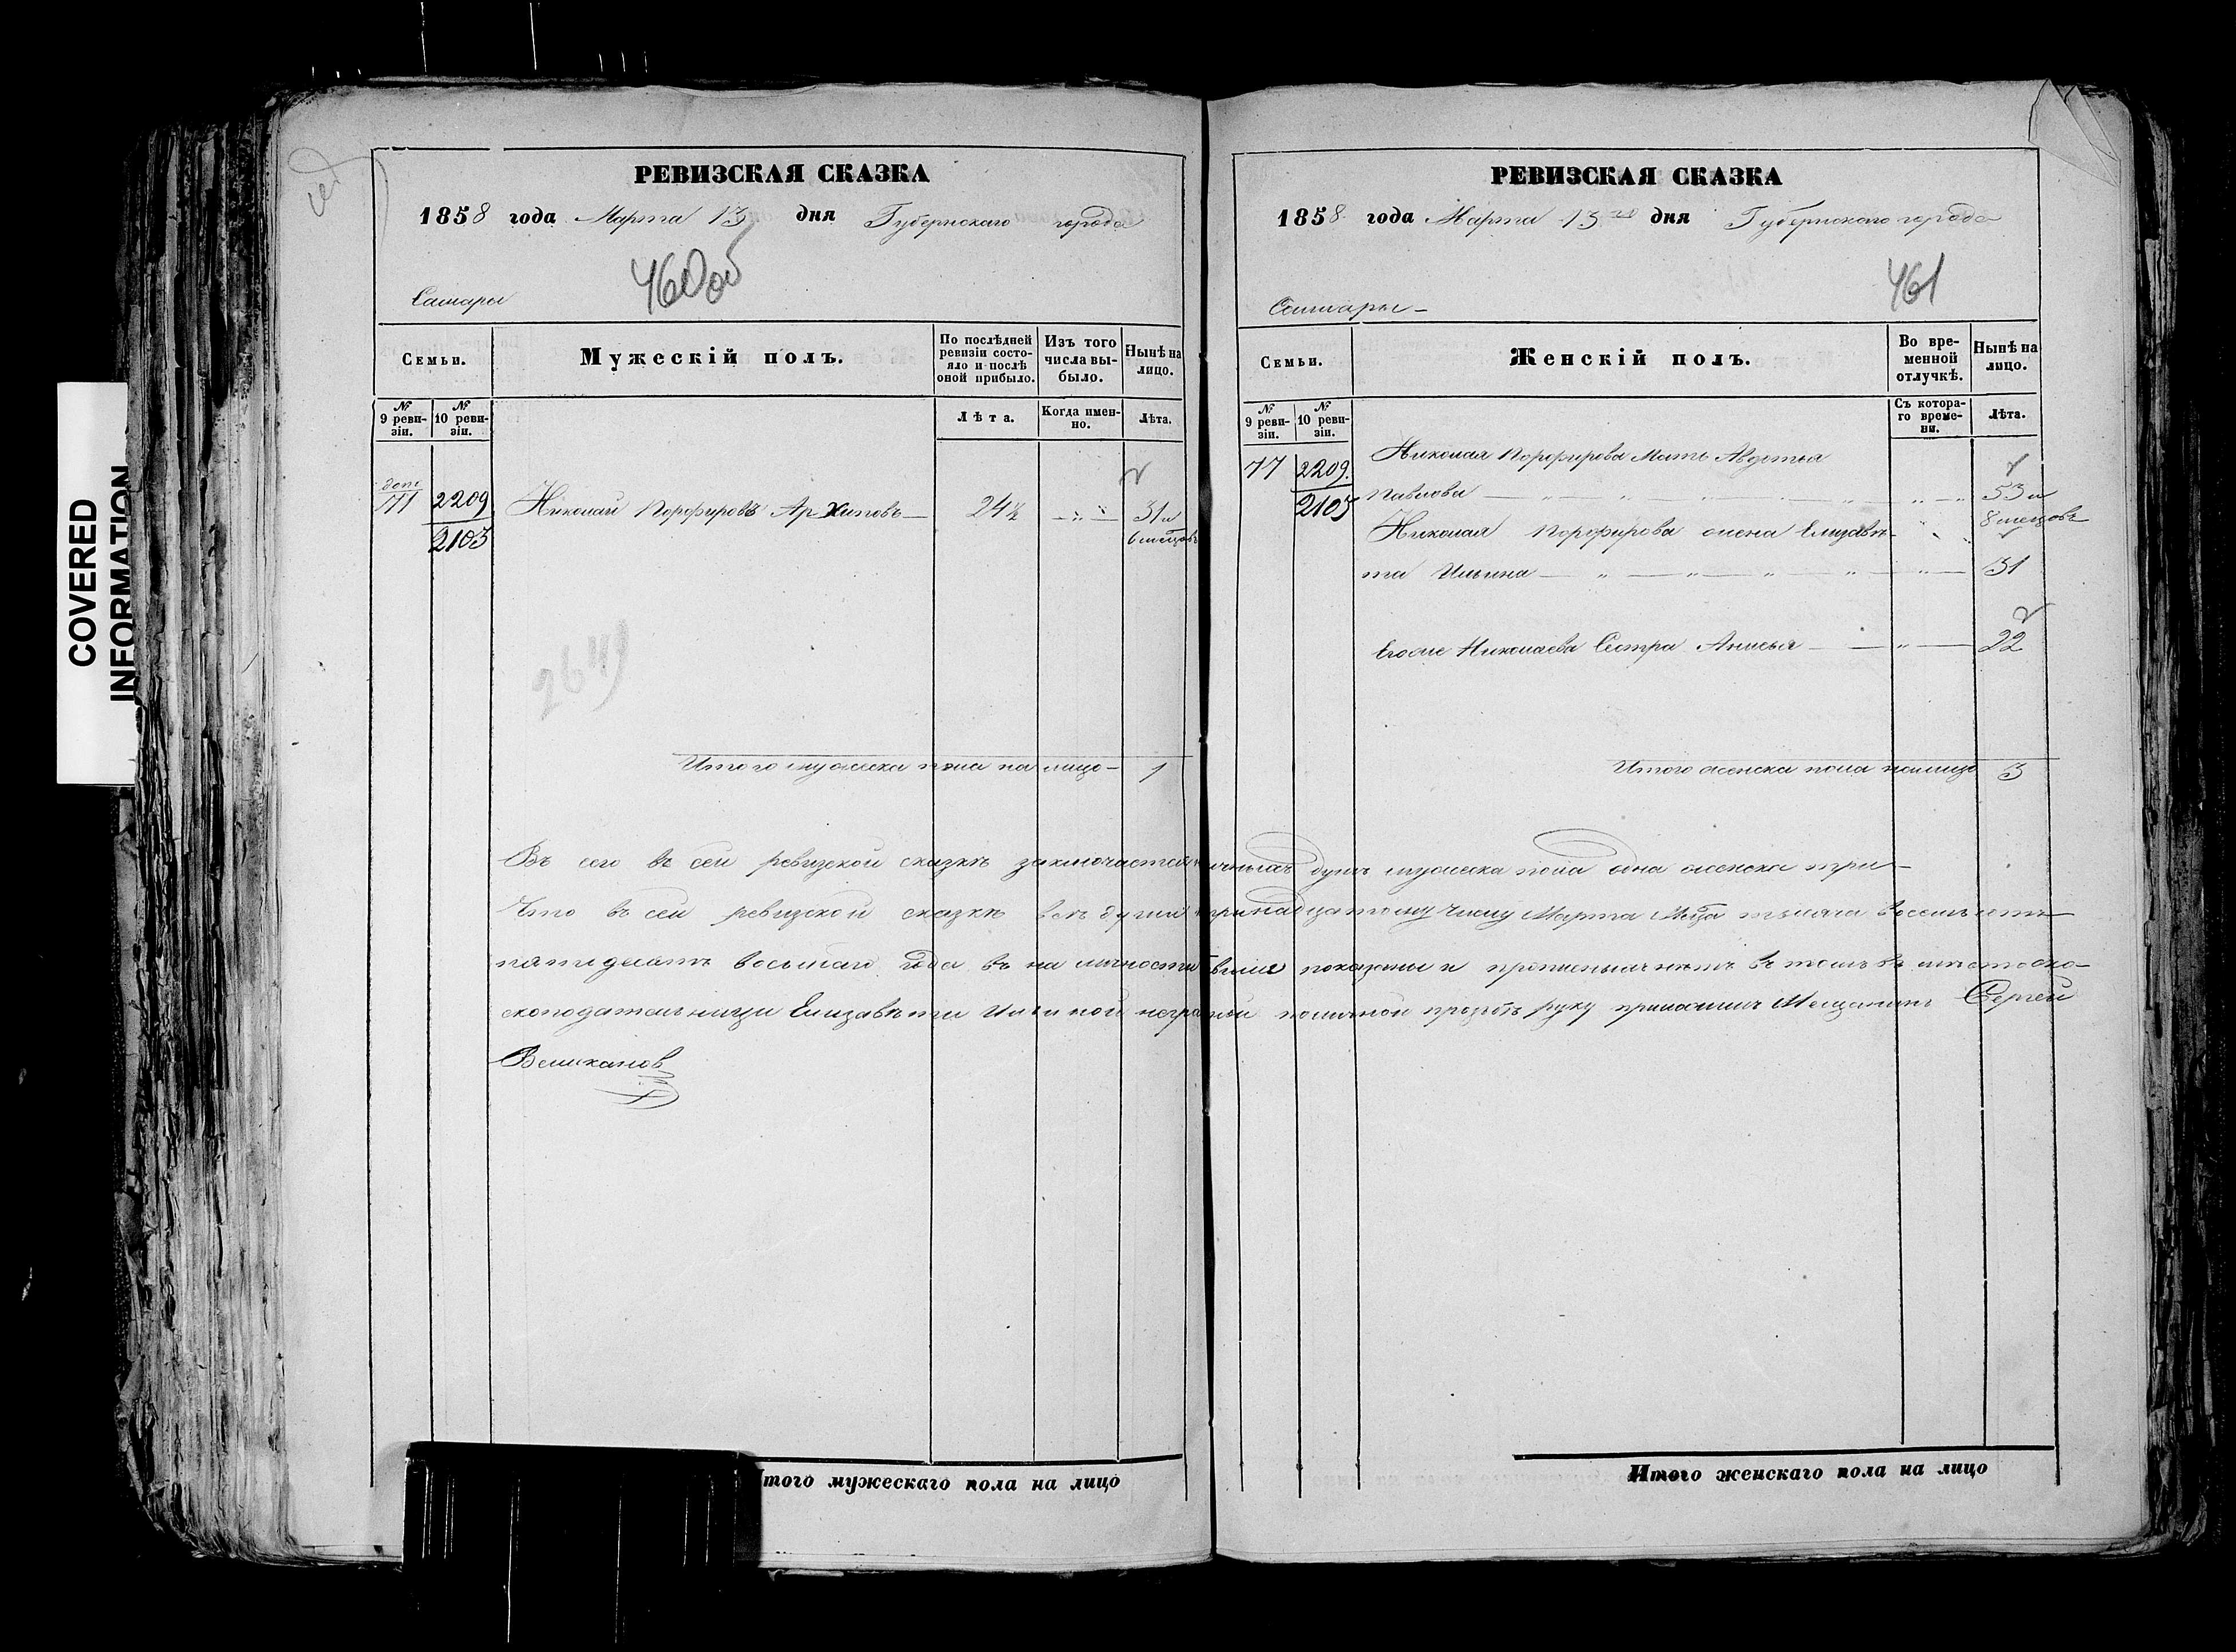 COVERED
INFORMATION
РЕВИЗСКАЯ СКАЗКА
1858 года Марта 13 дня Губернскаго города
460об
Самары
Семьи.
Мужескій полъ.
По послѣдней ревизіи состояло и послѣ оной прибыло.
Изъ того числа выбыло.
Нынѣ на лицо.
№ 9 ревизіи.
№ 10 ревизіи.
Лѣта.
Когда именно.
Лѣта.
доп
77 2209 Николай Порфировъ Архиповъ 24½ 31 и
2103 6 мецовъ
2649
Итого мужеска пола на лицо 1
РЕВИЗСКАЯ СКАЗКА
1858 года Марта 13 дня Губернскаго города
461
Самары
Семьи.
Женскій полъ.
Во временной отлучкѣ.
Нынѣ на лицо.
№ 9 ревизіи.
№ 10 ревизіи.
Съ котораго времени.
Лѣта.
77 2209. Николая Порфирова Мать Авдотья
2103 Павлова 53 и
8 мецовъ
Николая Порфирова жена Елизавѣ-
та Ильина 31
Егоже Николаева Сестра Анисья 22
Итого женска пола налицо 3
Въ сего въ сей ревизской сказкѣ заключается личныхъ душъ мужеска пола одна женска три
Что въ сей ревизской сказкѣ всѣ души тринадцатому числу Марта Мца тысяча восемьсотъ
пятидесятъ восьмаго года въ на личности показаны и прописныхъ нѣтъ въ томъ въ мѣсто ска-
скоподательницы Елизавѣты Ильиной неграмотной поличной прозбѣ руку приложилъ Мещанинъ Сергей
Великановъ
Итого мужескаго пола на лицо
Итого женскаго пола на лицо